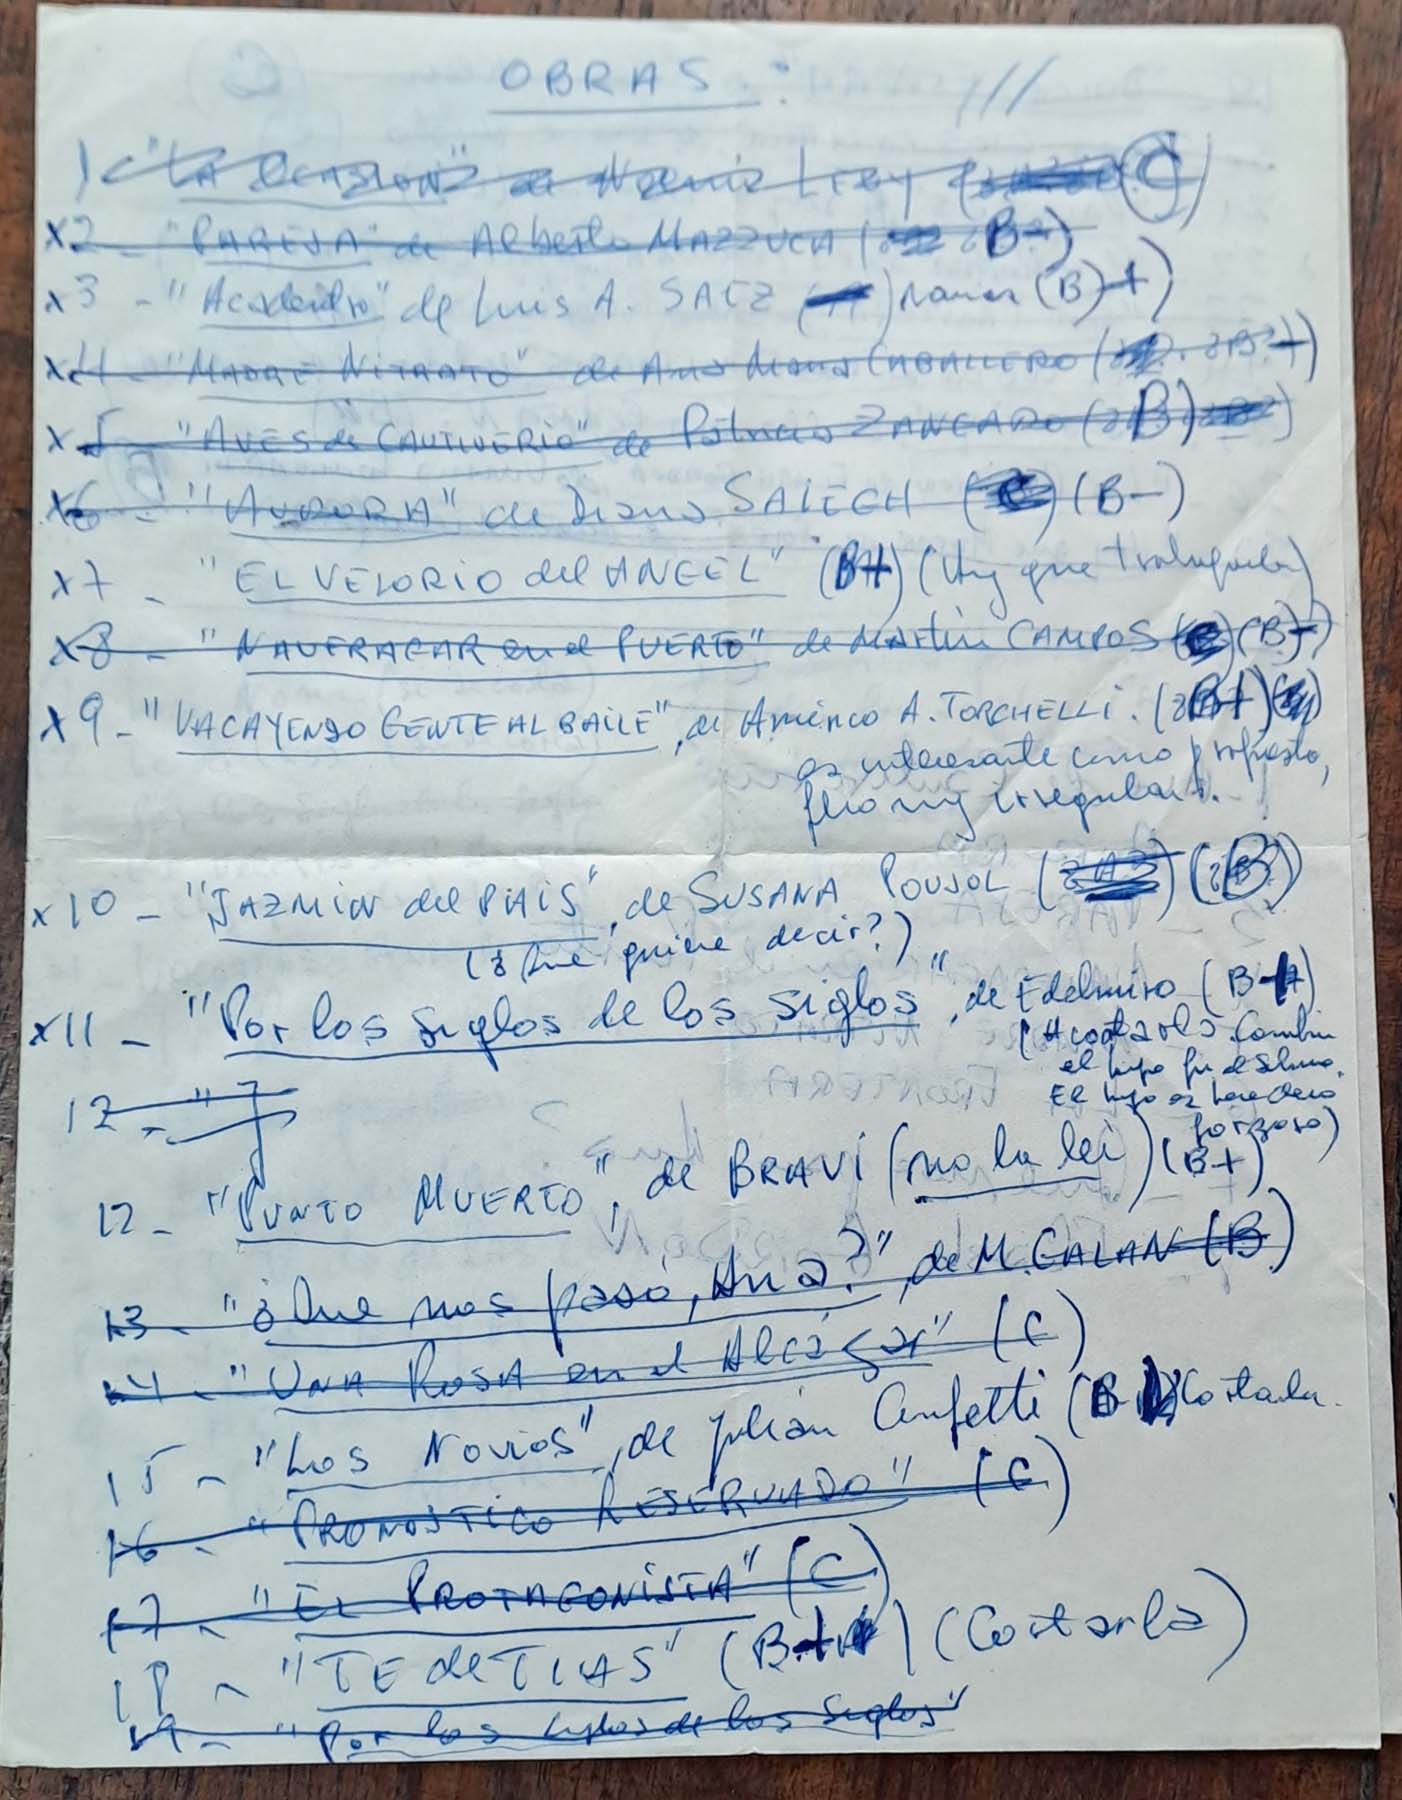 OBRAS:
1 "LA OCASION" de Noemi (C)
x2 - "PAREJA" de Alberto MAZZUCA (B+)
x3 - "Acodado" de Luis A. SAEZ (B)+)
x4 - "MADRE NITRATO" de Ana CABALLERO (B?+)
x5 - "AVES de CAUTIVERIO" de Patricio ZANCARO (B)
x6 - "AURORA" de Diana SALEGH (C) (B-)
x7 - "EL VELORIO del ANGEL" (B+) (Hay que trabajarla)
x8 - "NAUFRAGAR en el PUERTO" de Martin CAMPOS (B+)
x9 - "VACAYENDO GENTE AL BAILE", de Américo A. TORCHELLI. (B+)
es interesante como propuesta,
pero muy irregular.
x10 - "JAZMIN del PAIS", de SUSANA POUJOL (B)
(¿Que quiere decir?)
x11 - "Por los siglos de los siglos", de Edelmiro (B+)
(Acortarla. Cambiar
el hijo
El hijo es heredero
forzoso)
12 - "
12 - "PUNTO MUERTO", de BRAVI (no la lei) (B+)
13 - "¿Que nos pasó, Ana?", de M. GALAN (B)
14 - "UNA ROSA en el Alcázar" (C)
15 - "Los Novios", de Julián Cenfetti (B Cortarla.
16 - "PRONOSTICO RESERVADO" (C)
17 - "EL PROTAGONISTA" (C)
18 - "TE de TIAS" (B+) (Cortarla)
19 - "Por los siglos de los siglos"